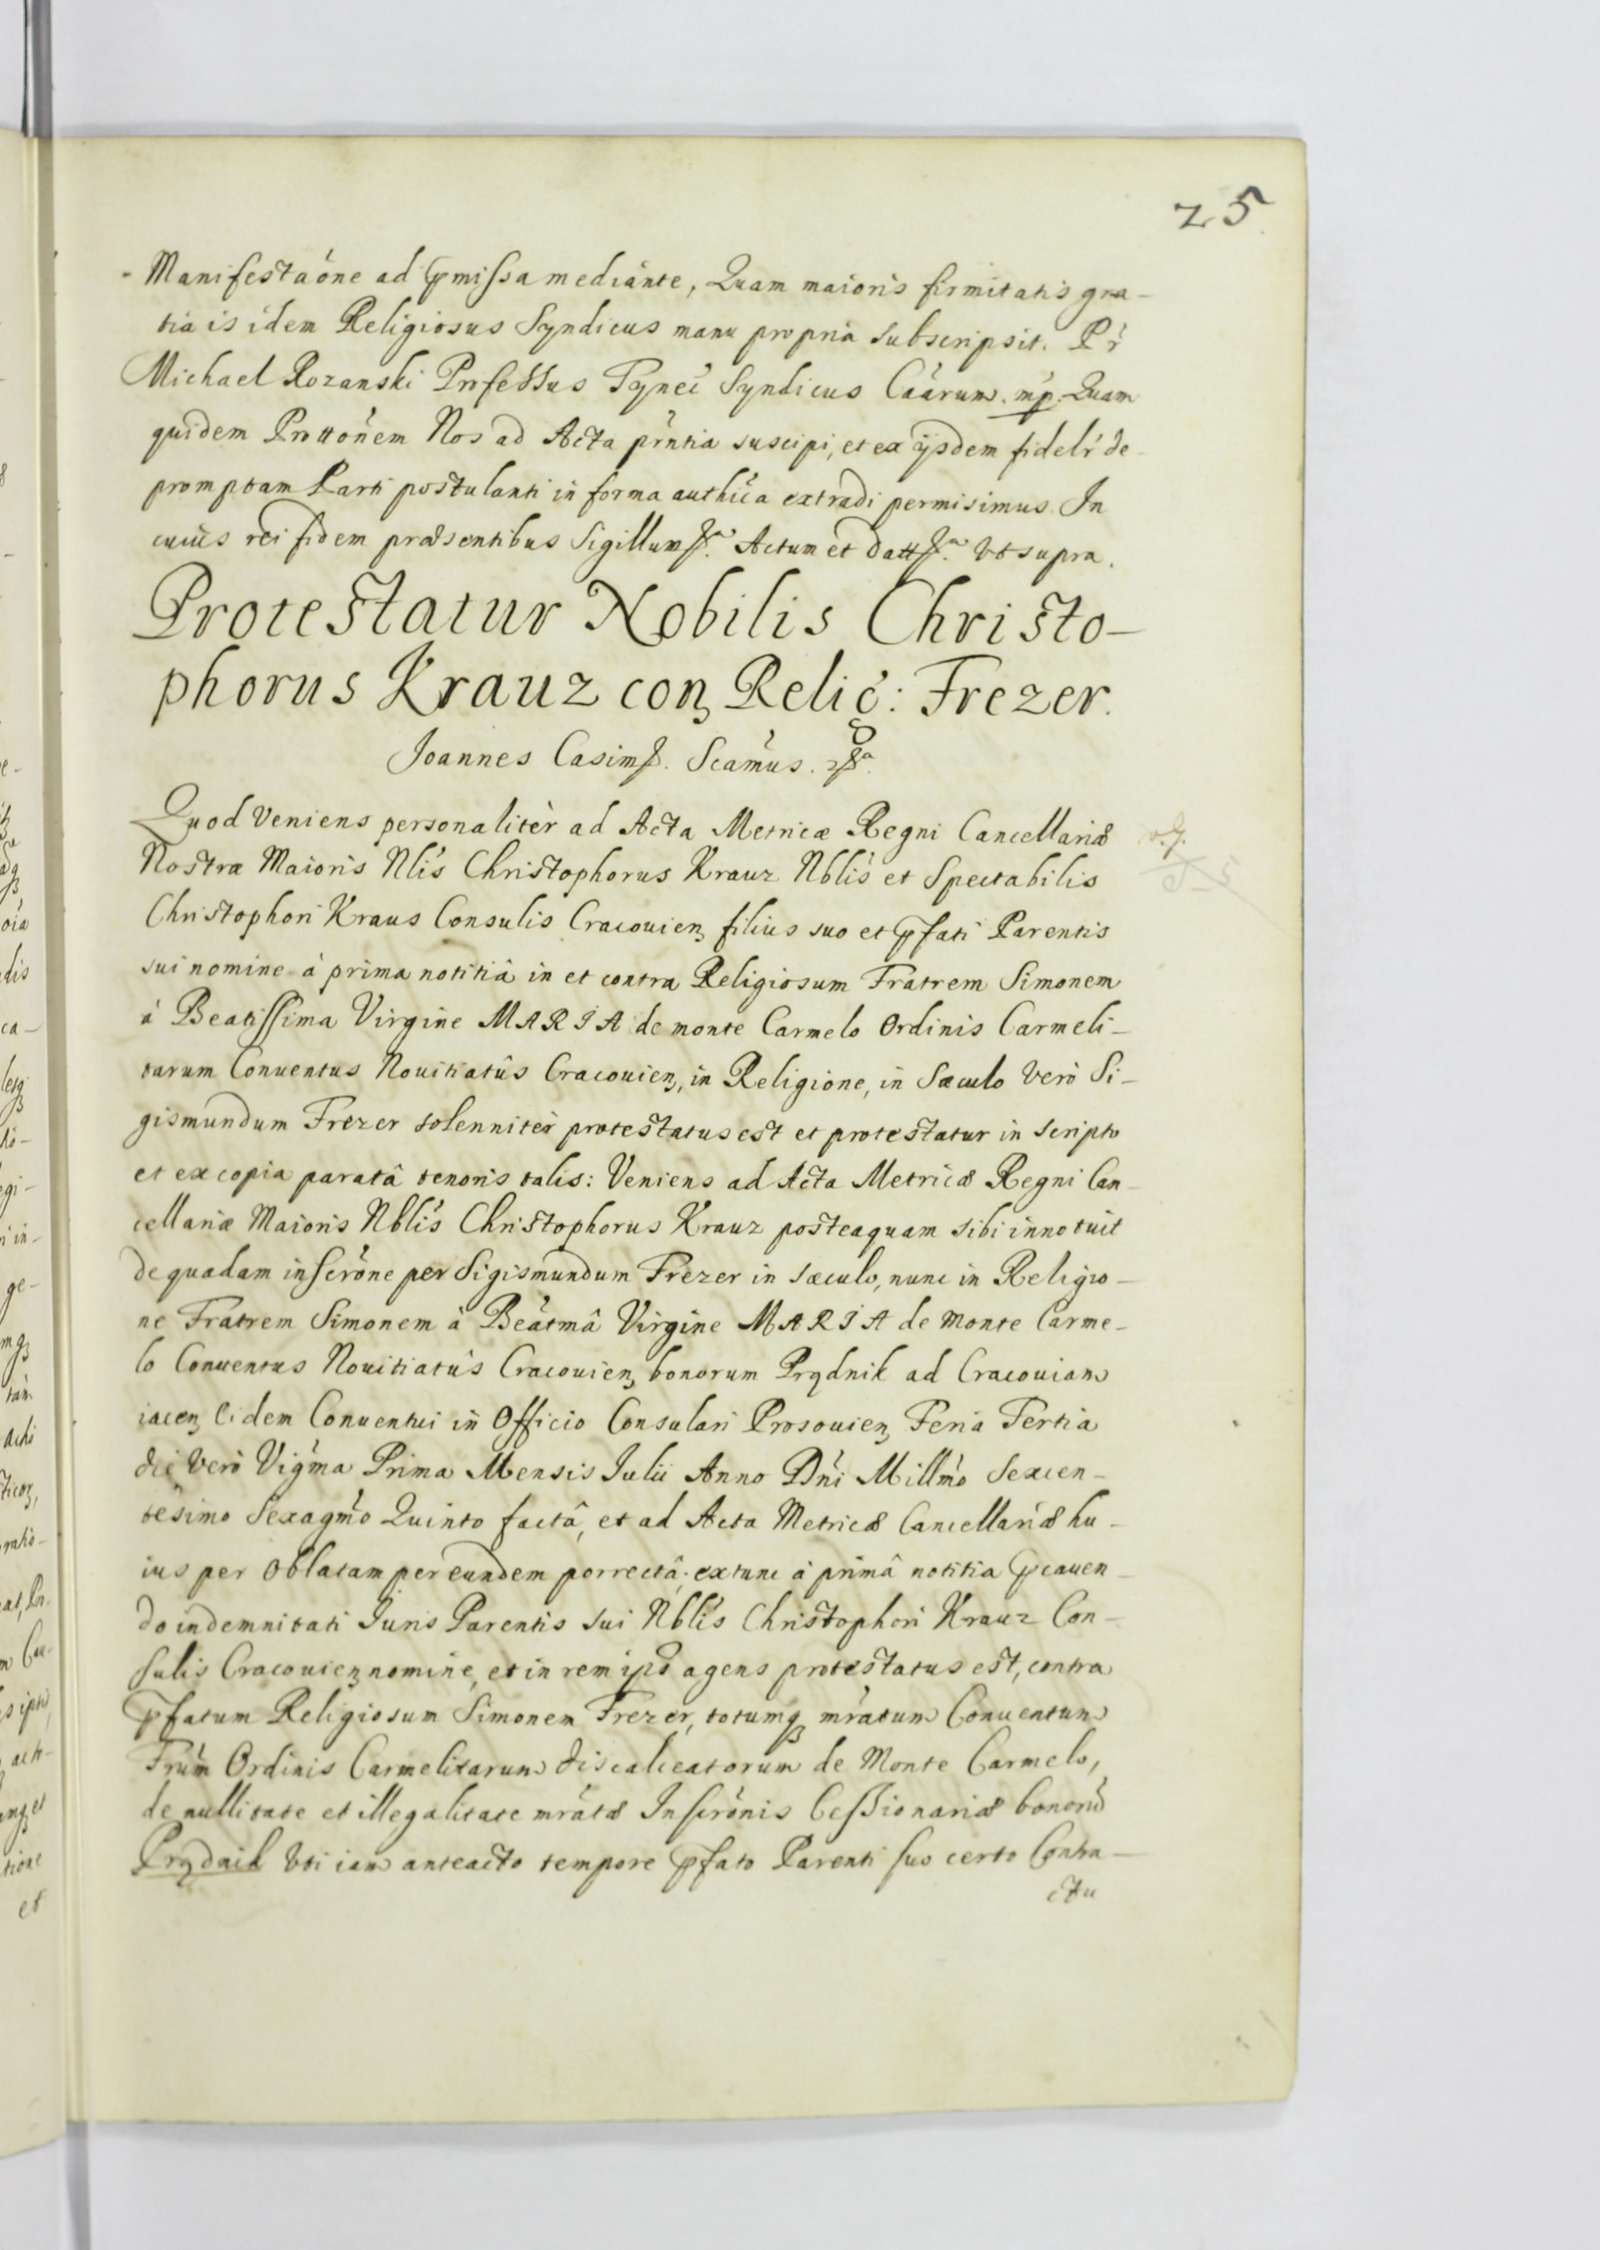 25
Manifestaóne ad pmissa mediante, Quam maioris firmitatis gra-
tia is idem Religiosus Syndicus manu propria subscripsit. Pr
Michael Rozanski Professus Tyneć Syndicus Caárum. mp. Quam
quidem Prottónem Nos ad Acta prńtia suscipi, et ex ijsdem fidelr de-
promptam Parti postulanti in forma authića extradi permisimus. In
cuius rei fidem præsentibus Sigillum Actum et Datt Vt supra.
Protestatur Nobilis Christo-
phorus Krauz con Relig: Frezer.
Joannes Casim. Scámus.
Quod Veniens personalitèr ad Acta Metricæ Regni Cancellariæ
Nostræ Maioris Nlís Christophorus Krauz Nblís et Spectabilis
Christophori Kraus Consulis Cracouien filius suo et pfati Parentis
sui nomine à prima notitiâ in et contra Religiosum Fratrem Simonem
à Beatissima Virgine MARIA de monte Carmelo Ordinis Carmeli-
tarum Conuentus Nouitiatûs Cracouien, in Religione, in Sæculo Verò Si-
gismundum Frezer solennitèr protestatus est et protestatur in scripto
et ex copia paratâ tenoris talis: Veniens ad Acta Metricæ Regni Can-
cellariæ Maioris Nblís Christophorus Krauz posteaquam sibi innotuit
de quadam inscróne per Sigismundum Frezer in sæculo, nunc in Religio-
ne Fratrem Simonem à Beátmâ Virgine MARIA de Monte Carme-
lo Conuentus Nouitiatûs Cracouien bonorum Prydnik ad Cracouiam
iacen eidem Conuentui in Officio Consulari Prosouien Feria Tertia
die Verò Vigḿa Prima Mensis Iulii Anno Dńi Millḿo Sexcen-
tesimo Sexagḿo Quinto factâ, et ad Acta Metricæ Cancellariæ hu-
ius per Oblatam per eundem porrectâ; extunc à primâ notitia pcauen-
do indemnitati Iuris Parentis sui Nblís Christophori Krauz Con-
sulis Cracouien nomine, et in rem ipŏ agens protestatus est, contra
pfatum Religiosum Simonem Frezer, totumq mŕatum Conuentum
Frúm Ordinis Carmelitarum discalceatorum de Monte Carmelo,
de nullitate et illegalitate mŕatæ Inscrónis Cessionariæ bonorū
Prydnik Vti iam anteacto tempore pfato Parenti suo certo Contra-
ctu